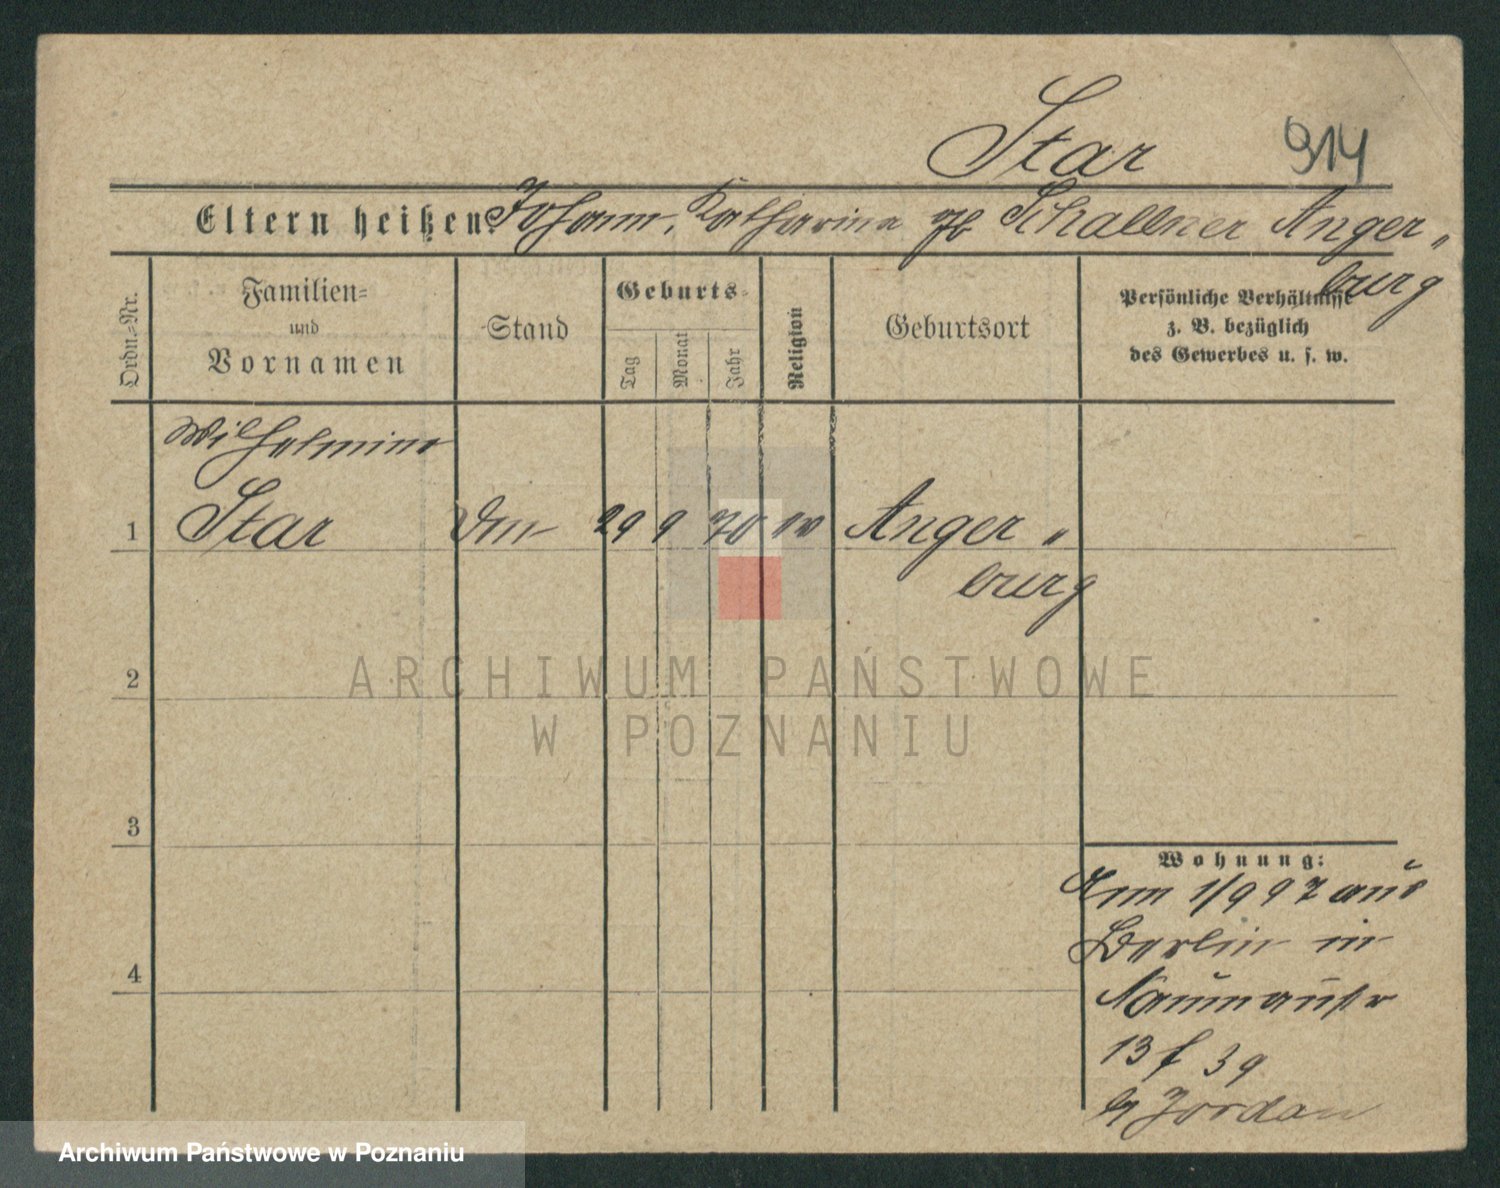 Star 914
Eltern heißen: Johann, Katharina gb Schallner Anger„
burg
Ordn.=Nr.
Familien=
und
Vornamen
Stand
Geburts=
Tag
Monat
Jahr
Religion
Geburtsort
Persönliche Verhältnisse
z. B. bezüglich
des Gewerbes u. s. w.
Wilhelmine
1 Star 29 9 70 ev Anger„
burg
2
ARCHIWUM PAŃSTWOWE
W POZNANIU
3
Wohnung:
1/9 97 aus
Berlin in
4
13 f 39
Jordan
Archiwum Państwowe w Poznaniu